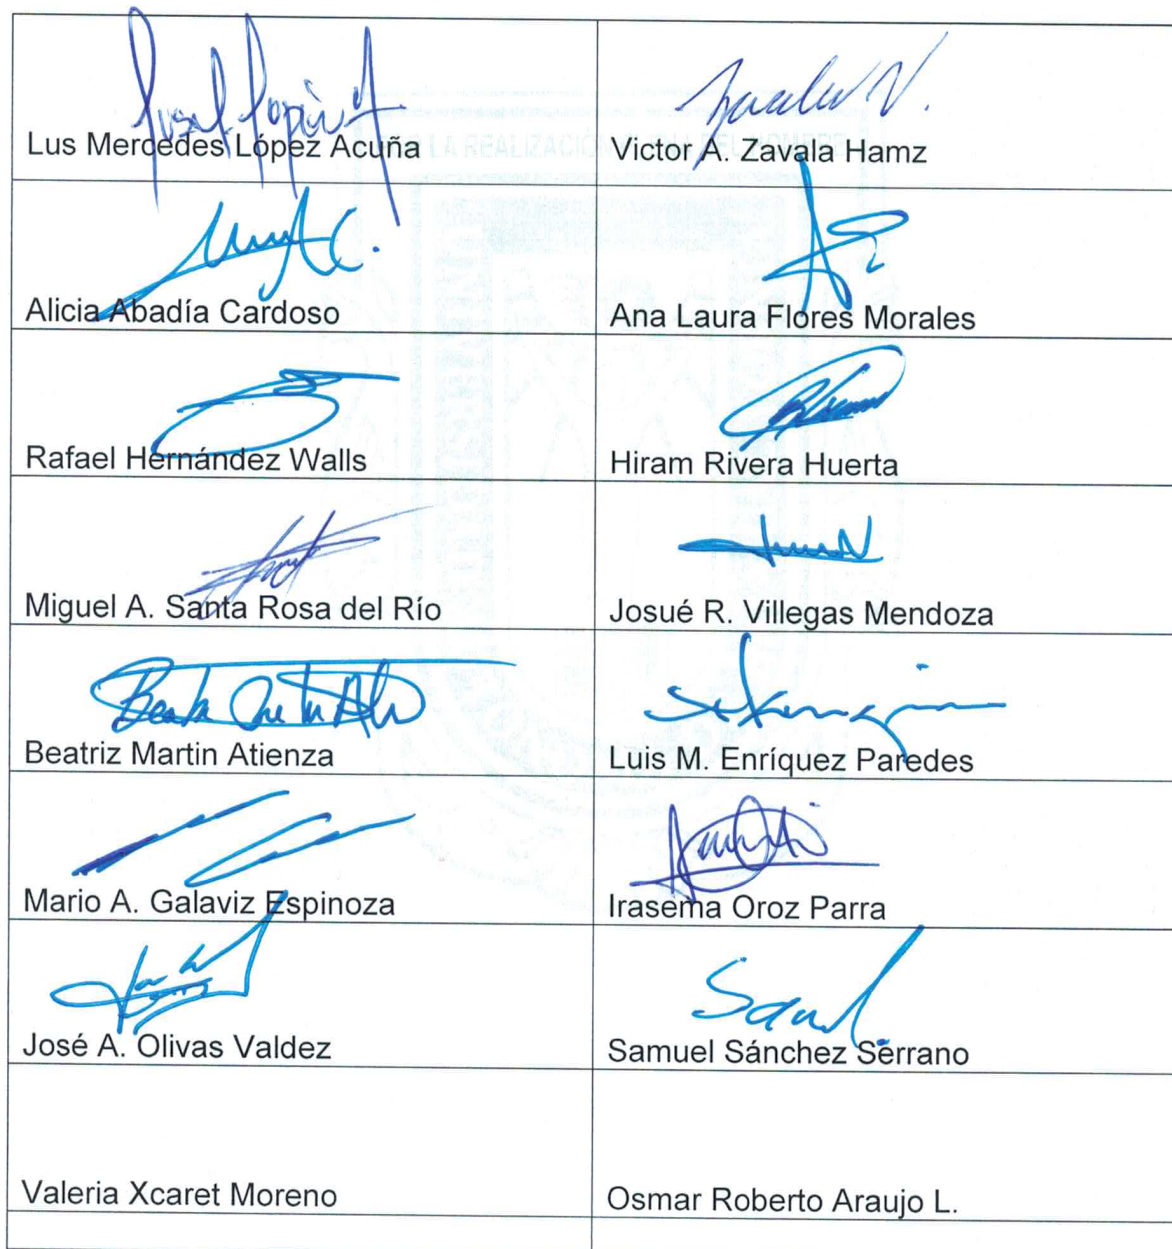 POR LA REALIZACIÓN PLENA DEL HOMBRE
Lus Mercedes López Acuña
Victor A. Zavala Hamz
Alicia Abadía Cardoso
Ana Laura Flores Morales
Rafael Hernández Walls
Hiram Rivera Huerta
Miguel A. Santa Rosa del Río
Josué R. Villegas Mendoza
Beatriz Martin Atienza
Luis M. Enríquez Paredes
Mario A. Galaviz Espinoza
Irasema Oroz Parra
José A. Olivas Valdez
Samuel Sánchez Serrano
Valeria Xcaret Moreno
Osmar Roberto Araujo L.